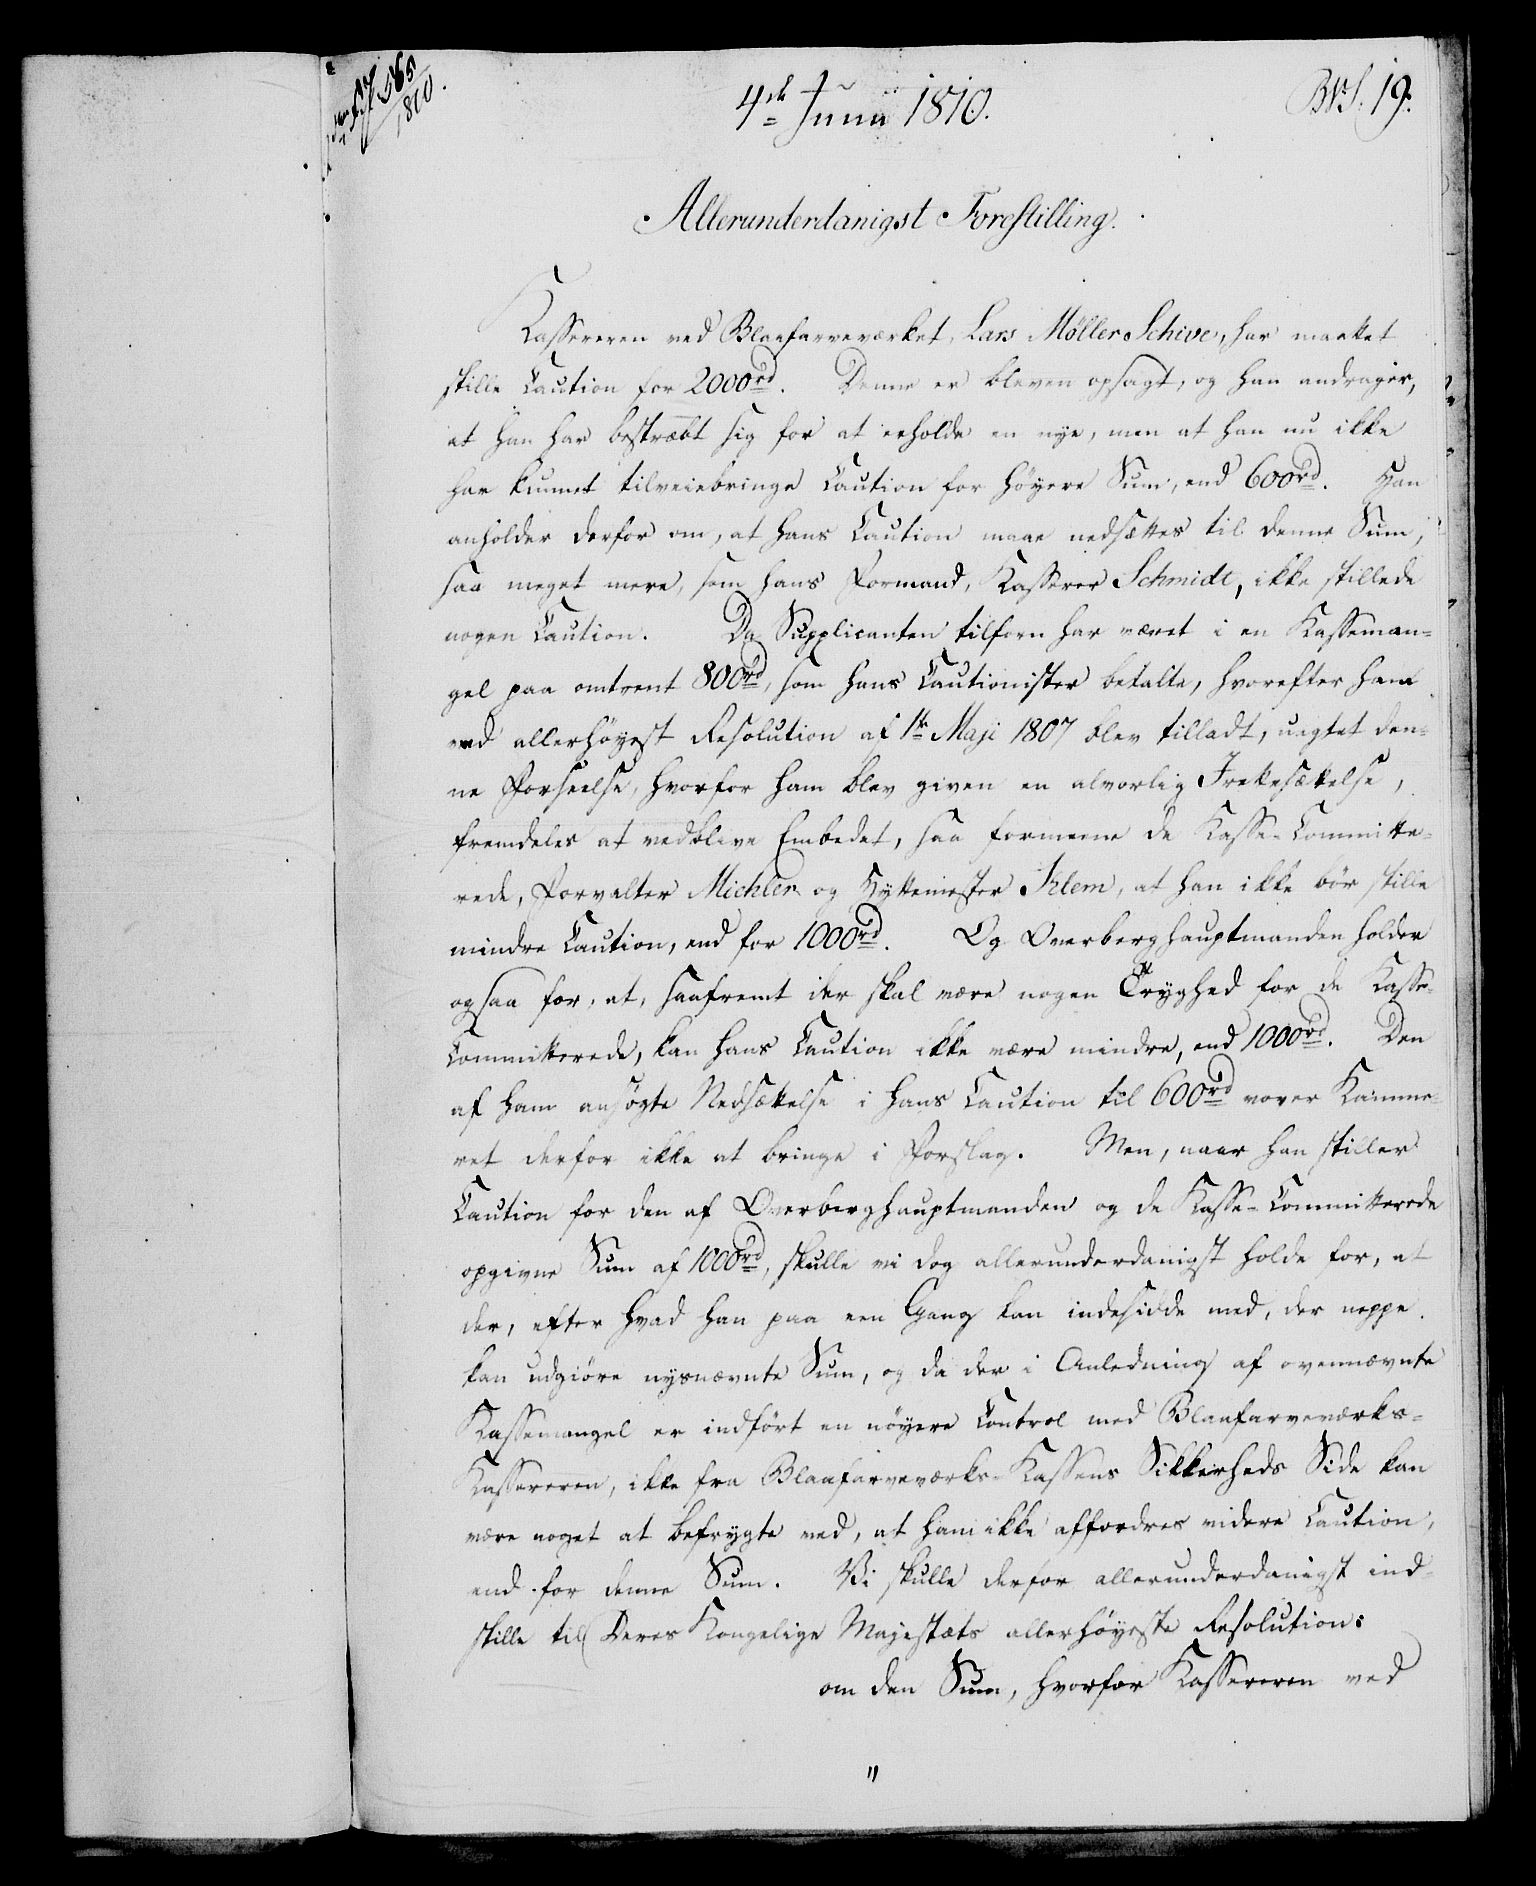 565
1810.
4de Junii 1810.
BVS. 19.
Allerunderdanigst Forestilling.
Kassereren ved Blaafarveværket, Lars Møller Schive, har maattet
stille Caution for 2000rd. Denne er bleven opsagt, og han andrager,
at han har bestræbt sig for at erholde en nye, men at han nu ikke
har kunnet tilveiebringe Caution for höyere Sum, end 600rd. Han
anholder derfor om, at hans Caution maae nedsættes til denne Sum,
saa meget mere, som hans Formand, Kasserer Schmidt, ikke stillede
nogen Caution. Da Supplicanten tilforn har været i en Kasseman-
gel paa omtrent 800rd, som hans Cautionister betalte, hvorefter ham
ved allerhöyest Resolution af 1te Maji 1807 blev tilladt, uagtet den-
ne Forseelse, hvorfor ham blev given en alvorlig Irettesættelse,
fremdeles at vedblive Embedet, saa formeene de Kasse-Committe-
rede, Forvalter Michler og Hyttemester Klem, at han ikke bör stille
mindre Caution, end for 1000rd. Og Overberghauptmanden holder
ogsaa for, at, saafremt der skal være nogen Tryghed for de Kasse-
Committerede, kan hans Caution ikke være mindre, end 1000rd. Den
af ham ansögte Nedsættelse i hans Caution til 600rd vover Kamme-
ret derfor ikke at bringe i Forslag. Men, naar han stiller
Caution for den af Overberghauptmanden og de Kasse-Committerede
opgivne Sum af 1000rd, skulle vi dog allerunderdanigst holde for, at
der, efter hvad han paa een Gang kan indesidde med, der neppe
kan udgiöre nysnævnte Sum, og da der i Anledning af ovennævnte
Kassemangel er indfört en nöyere Control med Blaafarveværks-
Kassereren, ikke fra Blaafarveværks-Kassens Sikkerheds Side kan
være noget at befrygte ved, at ham ikke affordres videre Caution,
end for denne Sum. Vi skulle derfor allerunderdanigst ind-
stille til Deres Kongelige Majestæts allerhöyeste Resolution:
om den Sum, hvorfor Kassereren ved
"